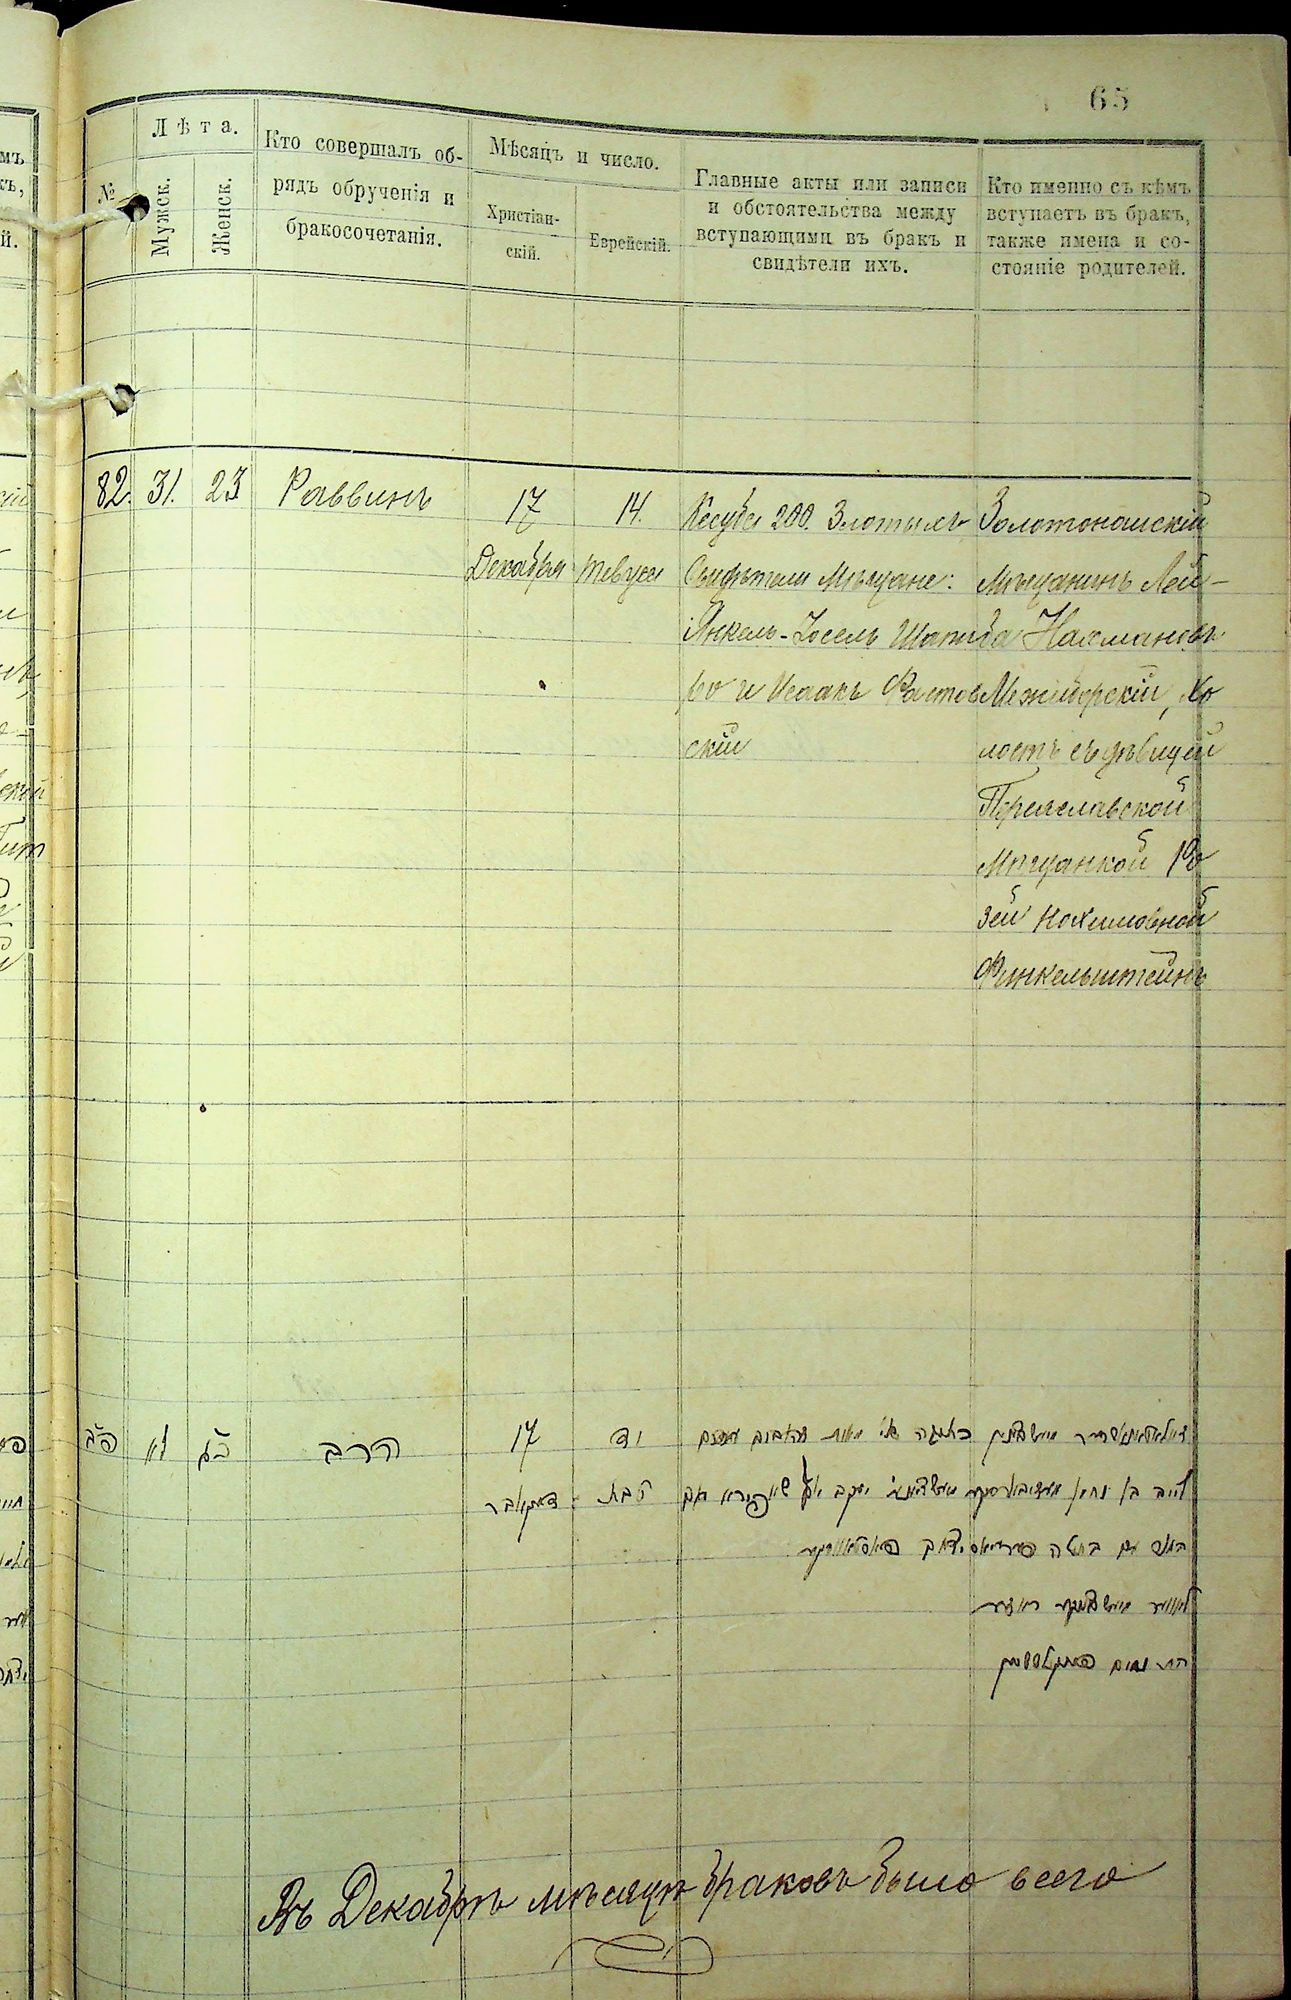 65
№
Лѣта.
Мужск.
Женск.
Кто совершалъ об-
рядъ обрученія и
бракосочетанія.
Мѣсяцъ и число.
Христіан-
скій.
Еврейскій.
Главные акты или записи
и обстоятельства между
вступающими въ бракъ и
свидѣтели ихъ.
Кто именно съ кѣмъ
вступаетъ въ бракъ,
также имена и со-
стояніе родителей.
82.
31.
23
Раввинъ
17
Декабря
14.
Тевуса
Кесуба 200. Злотыхъ
Свидѣтели Мѣщане:
Янкель-Іосель Шапи
ро и Исаакъ Фастов
скій
Золотоношскій
Мѣщанинъ Лей-
ба Нахмановъ
Межиборскій, хо
лостъ съ дѣвицей
Переяславской
Мѣщанкой Ро
зей Нохимовной
Финкельштейнъ
פ״ב
ל״א
כ״ג
הרב
17
דעקאבר
יד
טבת
לייב בן נחמן
יעקב
בחור עם בתולה
בת נחום
Въ Декабрѣ мѣсяцѣ браковъ было всего